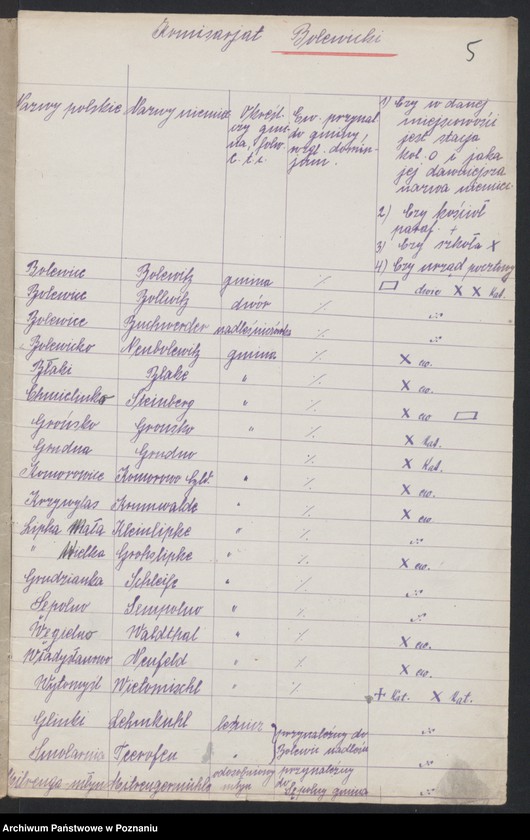 Komisarjat Bolewicki
5
Nazwy polskie Nazwy niemiec. Określ. czy gmi-na, folw. i. t. d. Ew. przynal. do gminy, wzgl. domin-jum. 1) Czy w danej miejscowości jest stacja kol. O i jaka jej dawniejsza nazwa niemiec.
2) Czy kościół paraf. +
3) Czy szkoła X
4) Czy urząd pocztowy ▭
Bolewice Bolewitz gmina ٪ dwie X X Kat.
Bolewice Bollwitz dwór ٪ ٪
Bolewice Buchwerder nadleśnictwo ٪ ٪
Bolewicko Neubolewitz gmina ٪ X ew.
Błaki Blake " ٪ X ew.
Chmielinko Steinberg " ٪ X ew ▭
Grońsko Gronsko " ٪ X Kat.
Grudna Grudno ٪ X Kat.
Komorowice Komorowo " ٪ X ew.
Krzywylas Krumwalde " ٪ X ew.
Lipka Mała Kleinlipke " ٪ ٪
" Wielka Grosslipke " ٪ X ew.
Grudzianka Schleife " ٪ ٪
Sępolno Sempolno " ٪ ٪
Węgielno Waldthal " ٪ X ew.
Władysławowo Neufeld " ٪ X ew.
Wytomyśl Wietomischl " ٪ + Kat. X Kat.
Glinki Lehmkuhl ٪
Smolarnia Teerofen " przynależny do Bolewic nadleśn. ٪
młyn odosobniony młyn przynależny do Sępolny gmina ٪
Archiwum Państwowe w Poznaniu